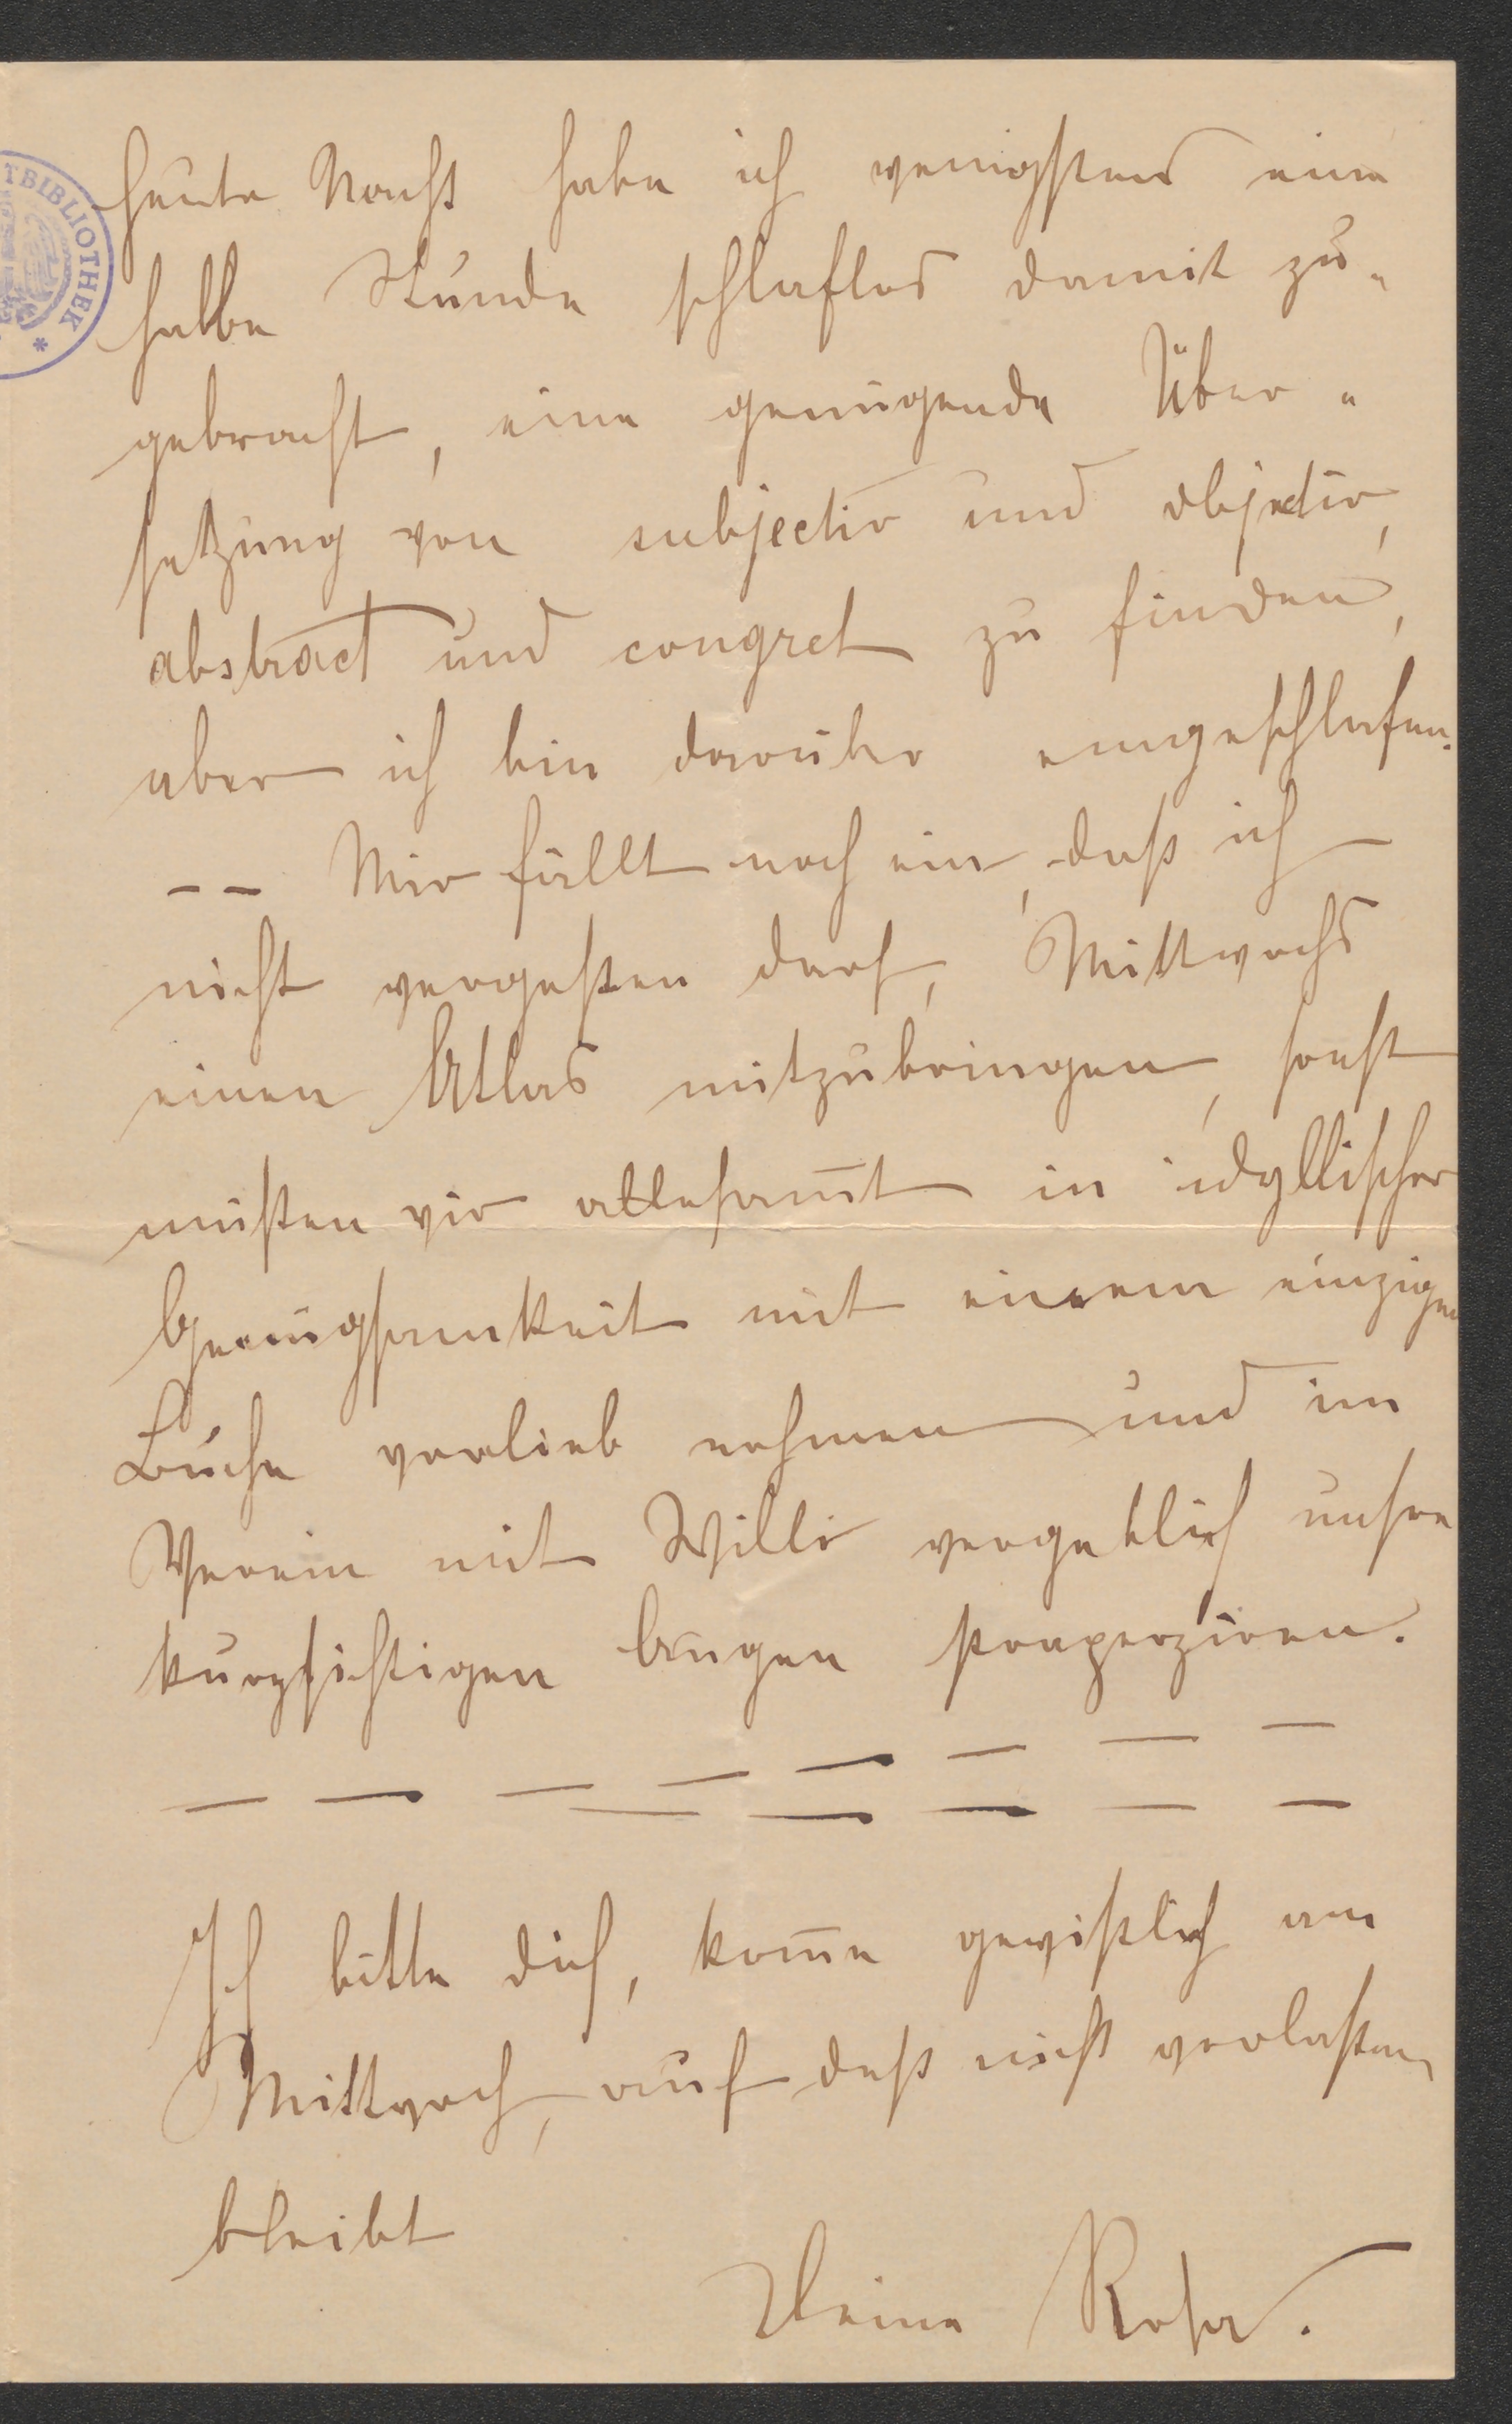 TBIBLIOTHEK *
heute Nacht habe ich wenigstens eine
halbe Stunde schlaflos damit zu-
gebracht, eine genügende Über-
setzung von subjectiv und objectiv,
abstract und congret zu finden,
aber ich bin darüber eingeschlafen.
-- Mir fällt noch ein, daß ich
nicht vergeßen darf, Mittwochs
einen Atlas mitzubringen, sonst
müßten wir allesam̅t in idyllischer
Genügsamkeit mit einem einzigen
Buche vorlieb nehmen und im
Verein mit Willi vergeblich unsre
kurzsichtigen Augen strapeziren.
— — — — — — — —
— — — — —
Ich bitte dich, kom̅e gewißlich am
Mittwoch, auf daß nicht verlaßen
bleibt
Deine Rosa.